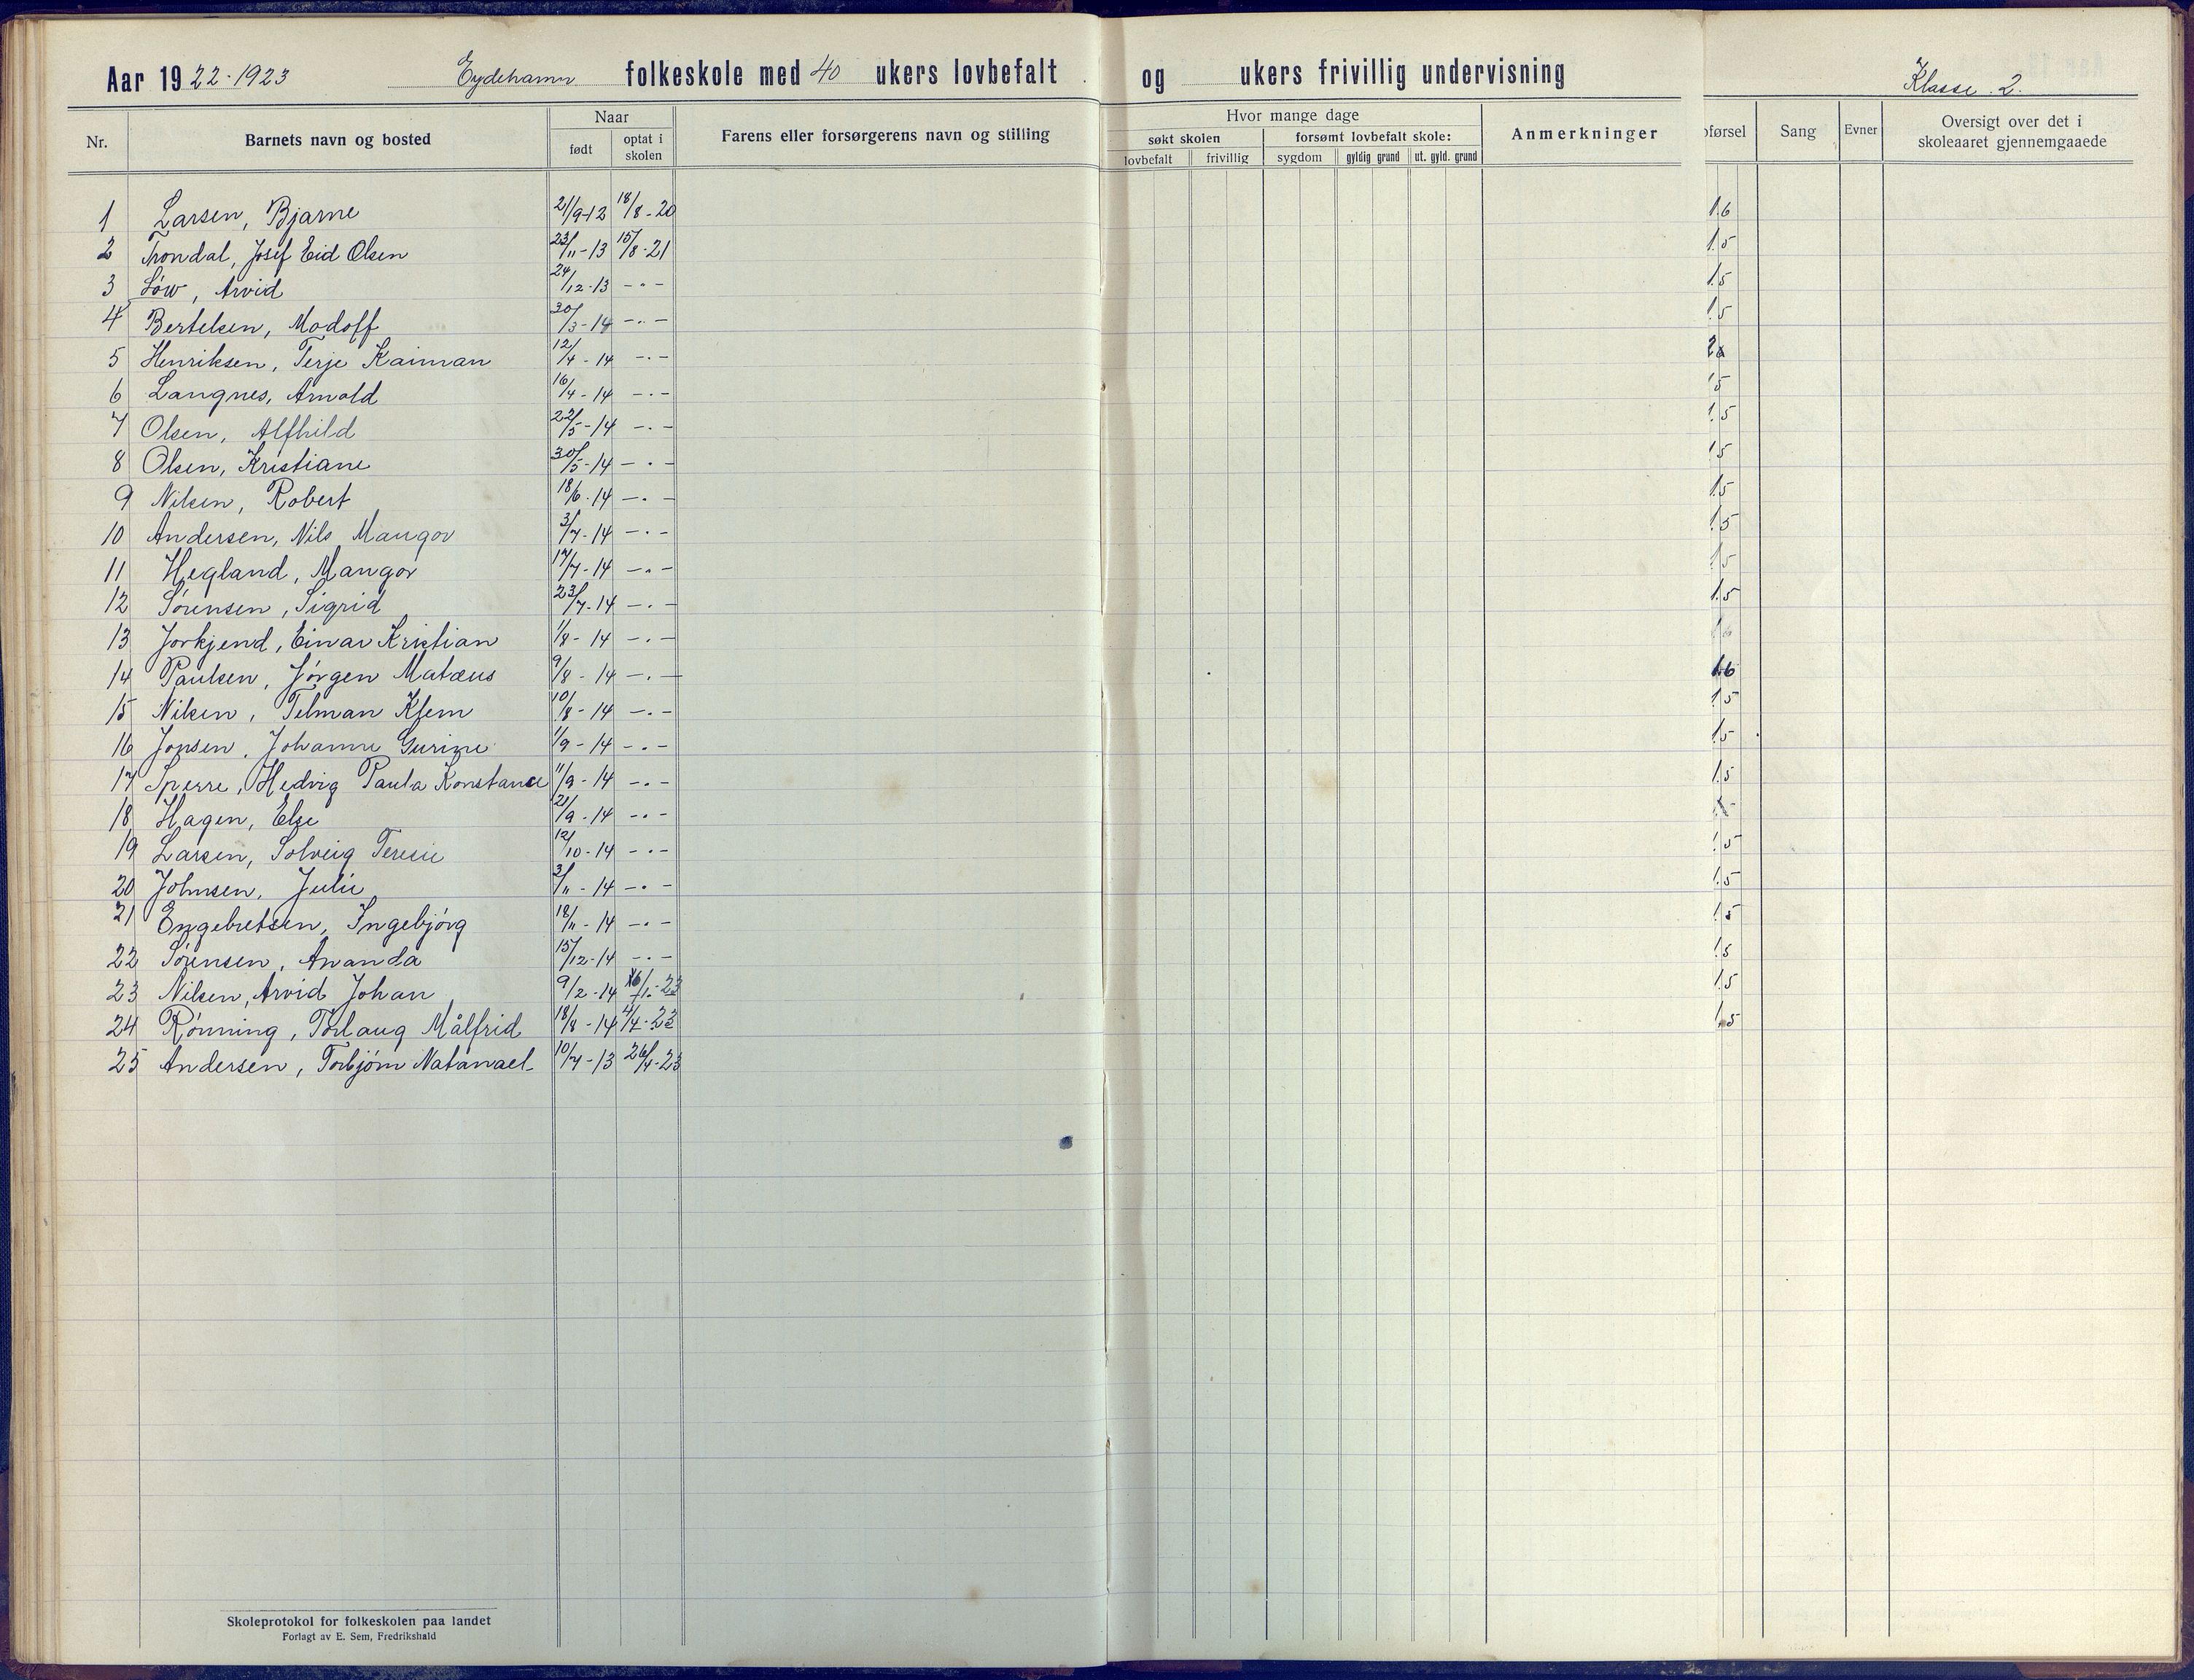 Aar 1922-1923 Eydehamn folkeskole med 40 ukers lovbefalt og ukers frivillig undervisning Klasse 2.
Nr. Barnets navn og bosted Naar Farens eller forsørgerens navn og stilling Hvor mange dage Anmerkninger førsel Sang Evner Oversigt over det i skoleaaret gjennemgaaede
født optat i skolen søkt skolen forsømt lovbefalt skole:
lovbefalt frivillig sygdom gyldig grund ut. gyld. grund
1 Larsen, Bjarne 21/9-12 18/8-20 1.6
2 Trondal, Josef Eid Olsen 23/11-13 15/8-21 1.5
3 Löw, Arvid 24/12-13 -"- 1.5
4 Bertelsen, Modolf 30/3-14 -"- 1.5
5 Henriksen, Terje Kaiman 12/4-14 -"-
6 Langnes, Arnold 16/4-14 -"- 1.5
7 Olsen, Alfhild 22/5-14 -"- 1.5
8 Olsen, Kristiane 30/5-14 -"- 1.5
9 Nilsen, Robert 18/6-14 -"- 1.5
10 Andersen, Nils Mangor 3/7-14 -"- 1.5
11 Hegland, Mangor 17/7-14 -"- 1.5
12 Sörensen, Sigrid 23/7-14 -"- 1.5
13 Jorkjend, Einar Kristian 1/8-14 -"-
14 Paulsen, Jörgen Matæus 9/8-14 -"- 1.6
15 Nilsen, Telman Klem 10/8-14 -"- 1.5
16 Jonsen, Johanne Gurine 1/9-14 -"- 1.5
17 Sperre, Hedvig Paula Konstanse 11/9-14 -"- 1.5
18 Hagen, Else 21/9-14 -"-
19 Larsen, Solveig Teresie 12/10-14 -"- 1.5
20 Johnsen, Julie 3/11-14 -"- 1.5
21 Engebretsen, Ingebjörg 18/11-14 -"- 1.5
22 Sörensen, Amanda 15/12-14 -"- 1.5
23 Nilsen, Arvid Johan 9/2-14 16/1-23 1.5
24 Rönning, Torlaug Målfrid 18/8-14 4/4-23 1.5
25 Andersen, Torbjörn Natanael 10/7-13 26/4-23
Skoleprotokol for folkeskolen paa landet
Forlagt av E. Sem, Fredrikshald